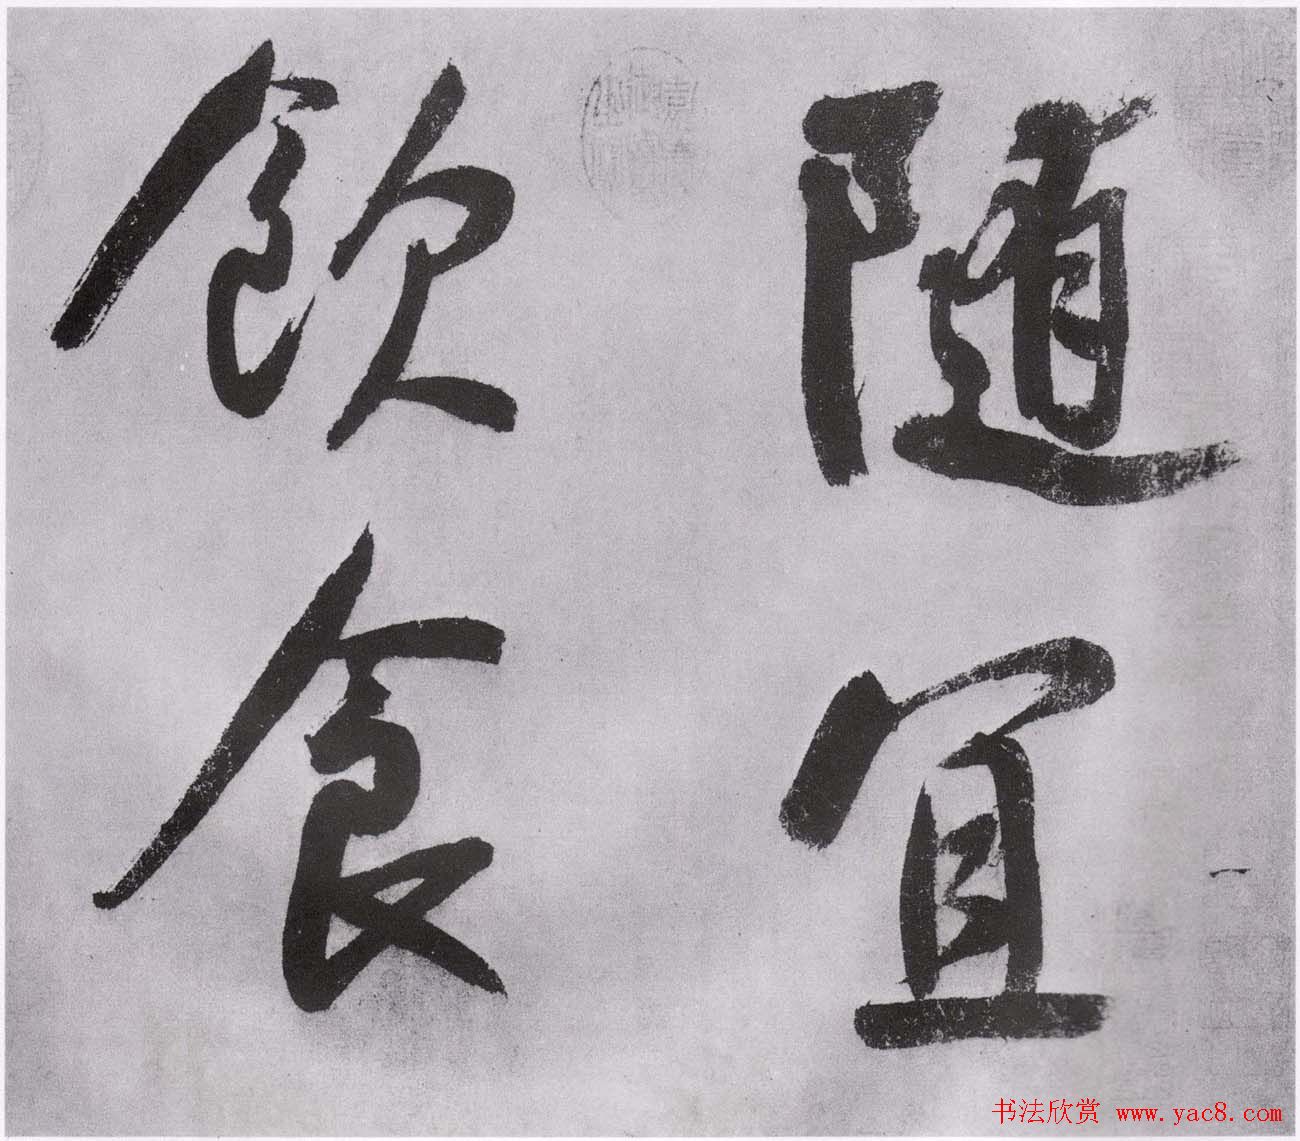 随宜
飲食
书法欣赏 www.yac8.com